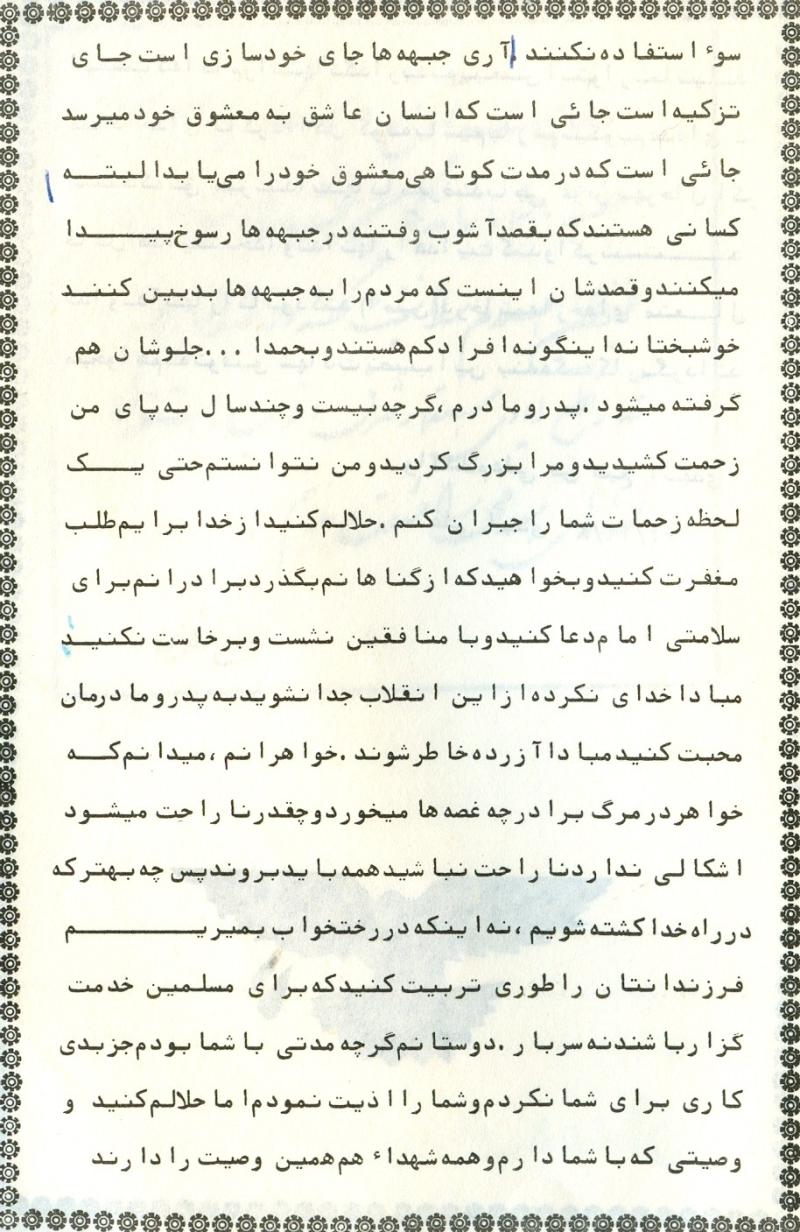 سوء استفاده نکنند. آری جبهه‌ها جای خودسازی است جای
تزکیه است جائی است که انسان عاشق به معشوق خود میرسد
جائی است که در مدت کوتاهی معشوق خود را می‌یابد البتـــه
کسانی هستند که بقصد آشوب و فتنه در جبهه‌ها رسوخ پیـــــدا
میکنند و قصدشان اینست که مردم را به جبهه‌ها بدبین کننـــد
خوشبختانه اینگونه افراد کم هستند و بحمدا ... جلوشان هم
گرفته میشود. پدر و مادرم، گرچه بیست و چند سال به پای من
زحمت کشیدید و مرا بزرگ کردید و من نتوانستم حتی یـــــک
لحظه زحمات شما را جبران کنم. حلالم کنید از خدا برایم طلب
مغفرت کنید و بخواهید که از گناهانم بگذرد برادرانم برای
سلامتی امام دعا کنید و با منافقین نشست و برخاست نکنیـــد
مبادا خدای نکرده از این انقلاب جدا نشوید به پدر و مادرمان
محبت کنید مبادا آزرده خاطر شوند. خواهرانم، میدانم کـــه
خواهر در مرگ برادر چه غصه‌ها میخورد و چقدر ناراحت میشـــود
اشکالی ندارد ناراحت نباشید همه باید بروند پس چه بهتر که
در راه خدا کشته شویم، نه اینکه در رختخواب بمیریـــــــــم
فرزندانتان را طوری تربیت کنید که برای مسلمین خدمت
گزار باشند نه سربار. دوستانم گرچه مدتی با شما بودم جز بدی
کاری برای شما نکردم و شما را اذیت نمودم اما حلالم کنید و
وصیتی که با شما دارم و همه شهداء هم همین وصیت را دارند